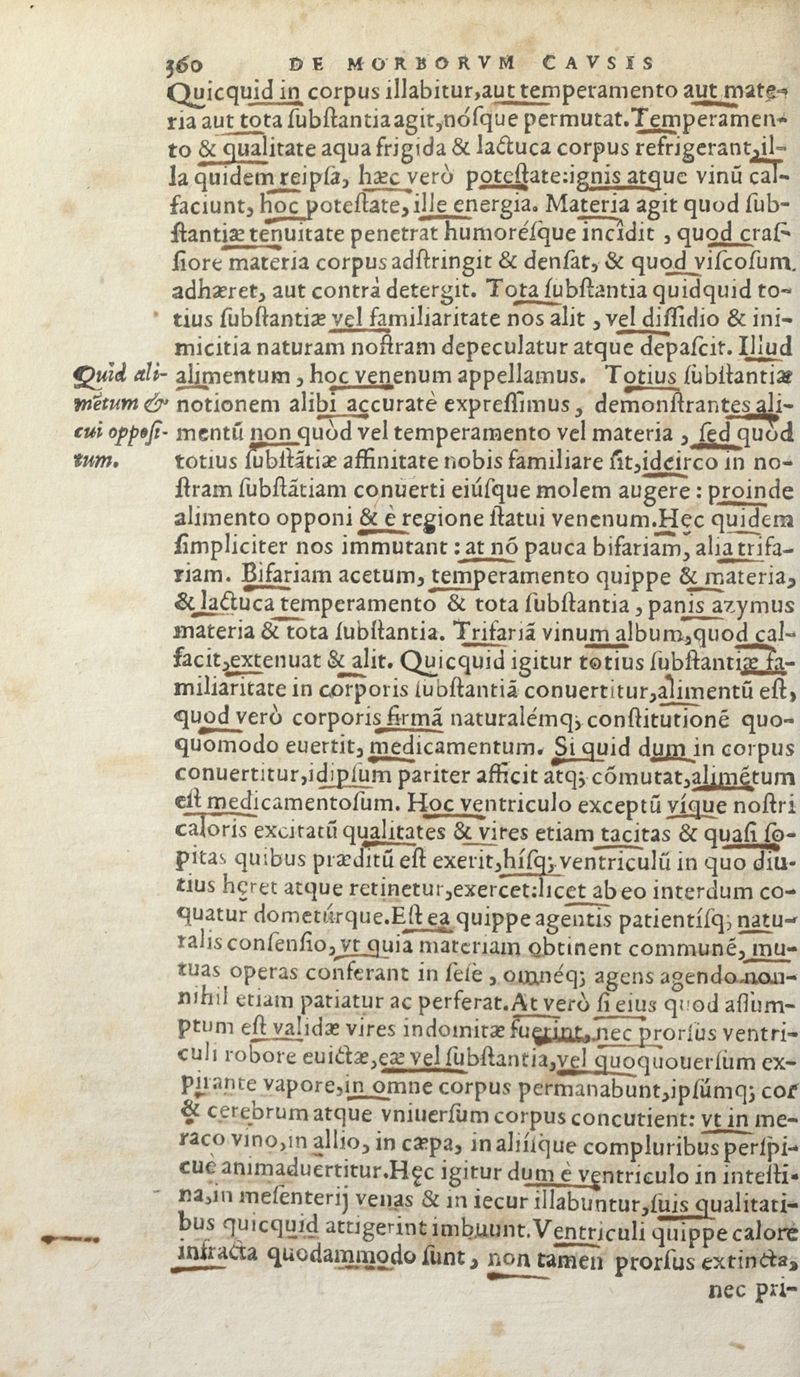 360 DE MORBORVM CAVSIS
Quicquid in corpus illabitur,aut temperamento aut mate-
ria aut tota ſubſtantia agit,nóſque permutat.Temperamen-
to & qualitate aqua frigida & lactuca corpus refrigerant,il-
la quidem reipſa, hæc verò poteſtate:ignis atque vinū cal-
faciunt, hoc poteſtate, ille energia. Materia agit quod ſub-
ſtantiæ tenuitate penetrat humoréſque incidit , quod craſ-
ſiore materia corpus adſtringit & denſat, & quod viſcoſum.
adhæret, aut contrà detergit. Tota ſubſtantia quidquid to-
tius ſubſtantiæ vel familiaritate nos alit , vel diſſidio & ini-
micitia naturam noſtram depeculatur atque depaſcit. Illud
Quid ali- alimentum , hoc venenum appellamus. Totius ſubſtantiæ
mētum & notionem alibi accuratè expreſſimus, demonſtrantes ali-
cui oppoſi- mentū non quòd vel temperamento vel materia , ſed quòd
tum. totius ſubſtātiæ affinitate nobis familiare ſit,idcirco in no-
ſtram ſubſtātiam conuerti eiúſque molem augere : proinde
alimento opponi & è regione ſtatui venenum.Hęc quidem
ſimpliciter nos immutant : at nō pauca bifariam, alia trifa-
riam. Bifariam acetum, temperamento quippe & materia,
& lactuca temperamento & tota ſubſtantia , panis azymus
materia & tota ſubſtantia. Trifariā vinum album,quod cal-
facit,extenuat & alit. Quicquid igitur totius ſubſtantiæ fa-
miliaritate in corporis ſubſtantiā conuertitur,alimentū eſt,
quod verò corporis firmā naturalémq; conſtitutionē quo-
quomodo euertit, medicamentum. Si quid dum in corpus
conuertitur,idipſum pariter afficit atq; cōmutat,alimētum
eſt medicamentoſum. Hoc ventriculo exceptū víque noſtri
caloris excitatū qualitates & vires etiam tacitas & quaſi ſo-
pitas quibus præditū eſt exerit,híſq; ventriculū in quo diu-
tius hęret atque retinetur,exercet:licet ab eo interdum co-
quatur dometúrque.Eſt ea quippe agentis patientíſq; natu-
ralis conſenſio,vt quia materiam obtinent communē, mu-
tuas operas conferant in ſeſe , omnéq; agens agendo non-
nihil etiam patiatur ac perferat.At verò ſi eius quod aſſum-
ptum eſt validæ vires indomitæ fuerint, nec prorſus ventri-
culi robore euictæ,eæ vel ſubſtantia,vel quoquouerſum ex-
pirante vapore,in omne corpus permanabunt,ipſúmq; cor
& cerebrum atque vniuerſum corpus concutient: vt in me-
raco vino,in allio, in cæpa, in aliíſque compluribus perſpi-
cuè animaduertitur.Hęc igitur dum è ventriculo in inteſti-
na,in meſenterij venas & in iecur illabuntur,ſuis qualitati-
bus quicquid attigerint imbuunt.Ventriculi quippe calore
infracta quodammodo ſunt , non tamen prorſus extincta,
nec pri-